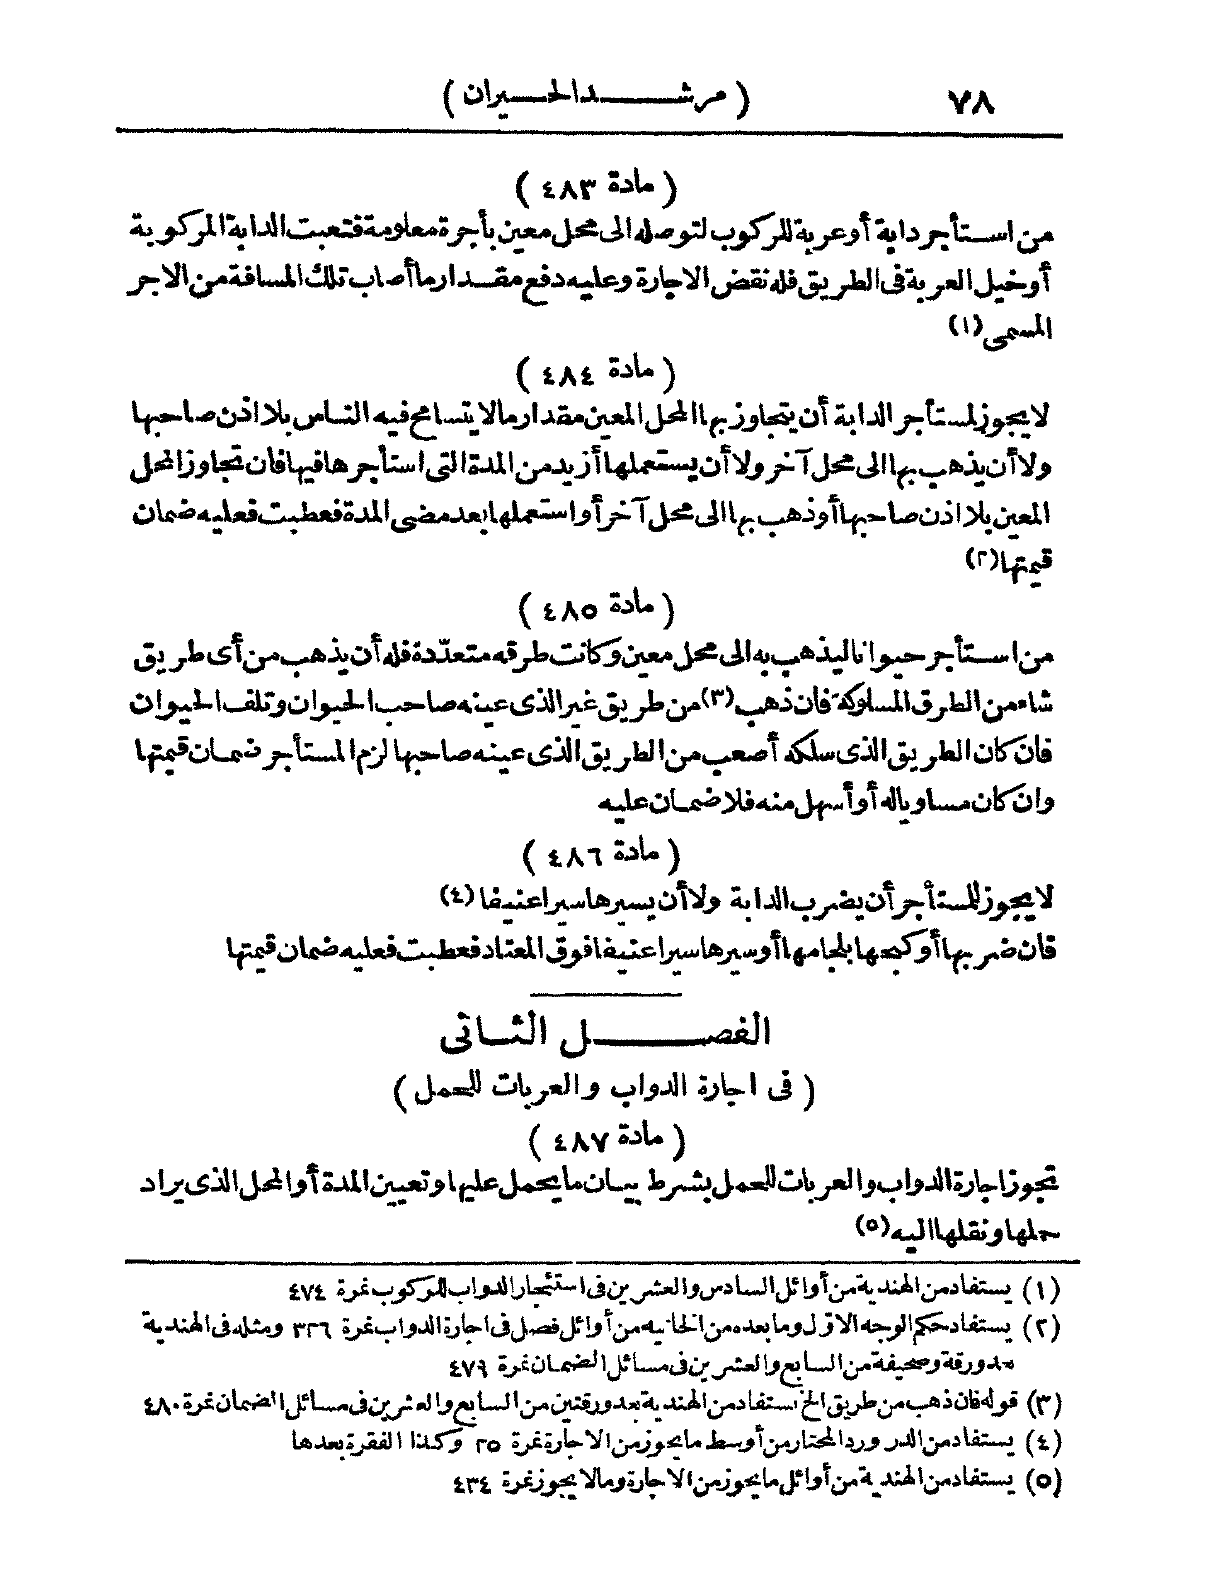 ٧٨ ( مرشد الحيران )
( مادة ٤٨٣ )
من استأجر دابة أو عربة للركوب لتوصله الى محل معين بأجرة معلومة فتعبت الدابة المركوبة
أو خيل العربة فى الطريق فله نقض الاجارة وعليه دفع مقدار ما أصاب تلك المسافة من الاجر
المسمى (١)
( مادة ٤٨٤ )
لا يجوز لمستأجر الدابة أن يتجاوز بها المحل المعين مقدار ما لا يتسامح فيه الناس بلا اذن صاحبها
ولا أن يذهب بها الى محل آخر ولا أن يستعملها أزيد من المدة التى استأجرها فيها فان تجاوز المحل
المعين بلا اذن صاحبها أو ذهب بها الى محل آخر أو استعملها بعد مضى المدة فعطبت فعليه ضمان
قيمتها (٢)
( مادة ٤٨٥ )
من استأجر حيوانا ليذهب به الى محل معين وكانت طرقه متعدّدة فله أن يذهب من أى طريق
شاء من الطرق المسلوكة فان ذهب (٣) من طريق غير الذى عينه صاحب الحيوان وتلف الحيوان
فان كان الطريق الذى سلكه أصعب من الطريق الذى عينه صاحبها لزم المستأجر ضمان قيمتها
وان كان مساويا له أو أسهل منه فلا ضمان عليه
( مادة ٤٨٦ )
لا يجوز للمستأجر أن يضرب الدابة ولا أن يسيرها سيرا عنيفا (٤)
فان ضربها أو كبحها بلجامها أو سيرها سيرا عنيفا فوق المعتاد فعطبت فعليه ضمان قيمتها
الفصل الثانى
( فى اجارة الدواب والعربات للحمل )
( مادة ٤٨٧ )
تجوز اجارة الدواب والعربات للحمل بشرط بيان ما يحمل عليها وتعيين المدة أو المحل الذى يراد
حملها ونقلها اليه (٥)
(١) يستفاد من الهندية من أوائل السادس والعشرين فى استئجار الدواب للركوب نمرة ٤٧٤
(٢) يستفاد حكم الوجه الاوّل وما بعده من الخانيه من أوائل فصل فى اجارة الدواب نمرة ٣٢٦ ومثله فى الهندية
بعد ورقة وصحيفة من السابع والعشرين فى مسائل الضمان نمرة ٤٧٩
(٣) قوله فان ذهب من طريق الخ يستفاد من الهندية بعد ورقتين من السابع والعشرين فى مسائل الضمان نمرة ٤٨٠
(٤) يستفاد من الدر ورد المحتار من أوسط ما يجوز من الاجارة نمرة ٢٥ وكذا الفقرة بعدها
(٥) يستفاد من الهندية من أوائل ما يجوز من الاجارة وما لا يجوز نمرة ٤٣٤